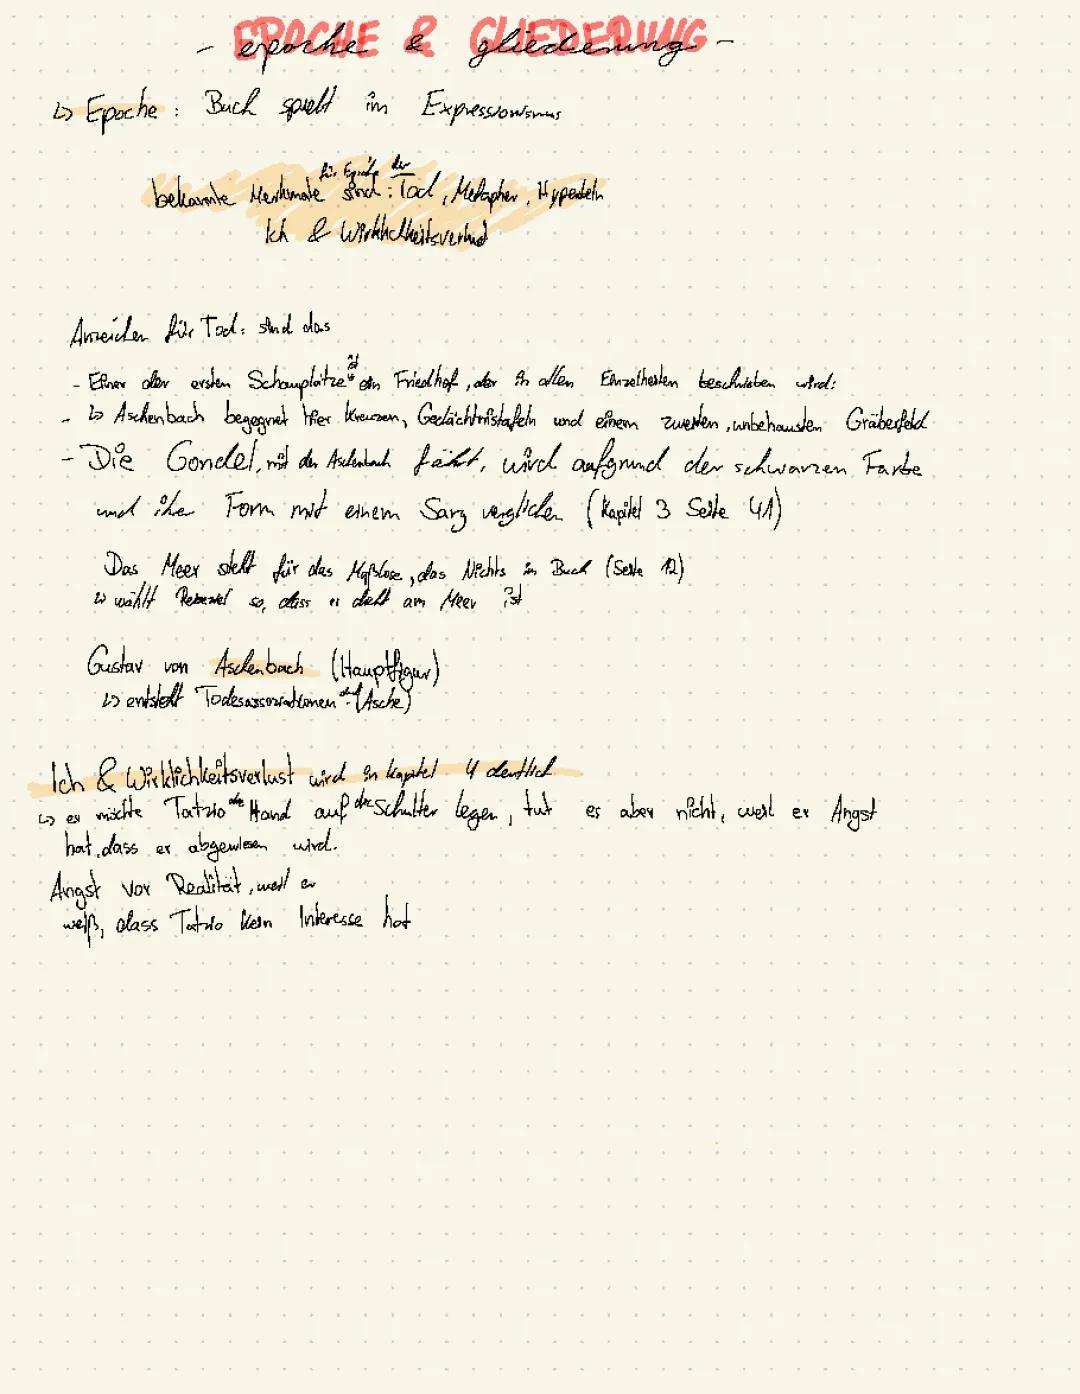 - epoche & gliederung -
↳ Epoche : Buch spielt im Expressionismus
für Epoche der
bekannte Merkmale sind : Tod, Metapher, Hyperbeln
Ich & Wirklichkeitsverlust
Anzeichen für Tod: sind das
- Einer der ersten Schauplätze ist ein Friedhof, der in allen Einzelheiten beschrieben wird:
- ↳ Aschenbach begegnet hier Kreuzen, Gedächtnistafeln und einem zweiten, unbehausten Gräberfeld
- Die Gondel, mit der Aschenbach fährt, wird aufgrund der schwarzen Farbe
und ihre Form mit einem Sarg verglichen (Kapitel 3 Seite 41)
Das Meer steht für das Maßlose, das Nichts im Buch (Seite 12)
↳ wählt so, dass er dicht am Meer ist
Gustav von Aschenbach (Hauptfigur)
↳ entsteht Todesassoziationen (Asche)
Ich & Wirklichkeitsverlust wird in Kapitel 4 deutlich
↳ er möchte Tatzio die Hand auf die Schulter legen, tut es aber nicht, weil er Angst
hat, dass er abgewiesen wird.
Angst vor Realität, weil er
weiß, dass Tatzio kein Interesse hat